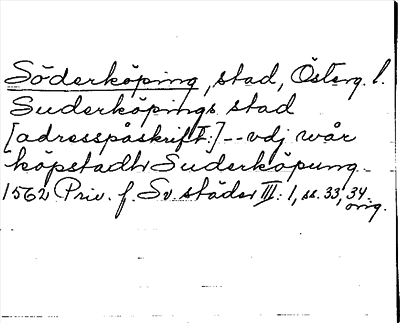 Söderköping, stad, Österg. l.
Suderköpings stad
[adresspåskrift:] -- vdj wår
köpstadh Suderköpung -
1562 Priv. f. Sv städer III: 1, ss. 33, 34.
orig.